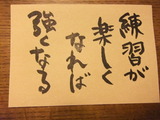 練習が
楽しく
なれば
強くなる